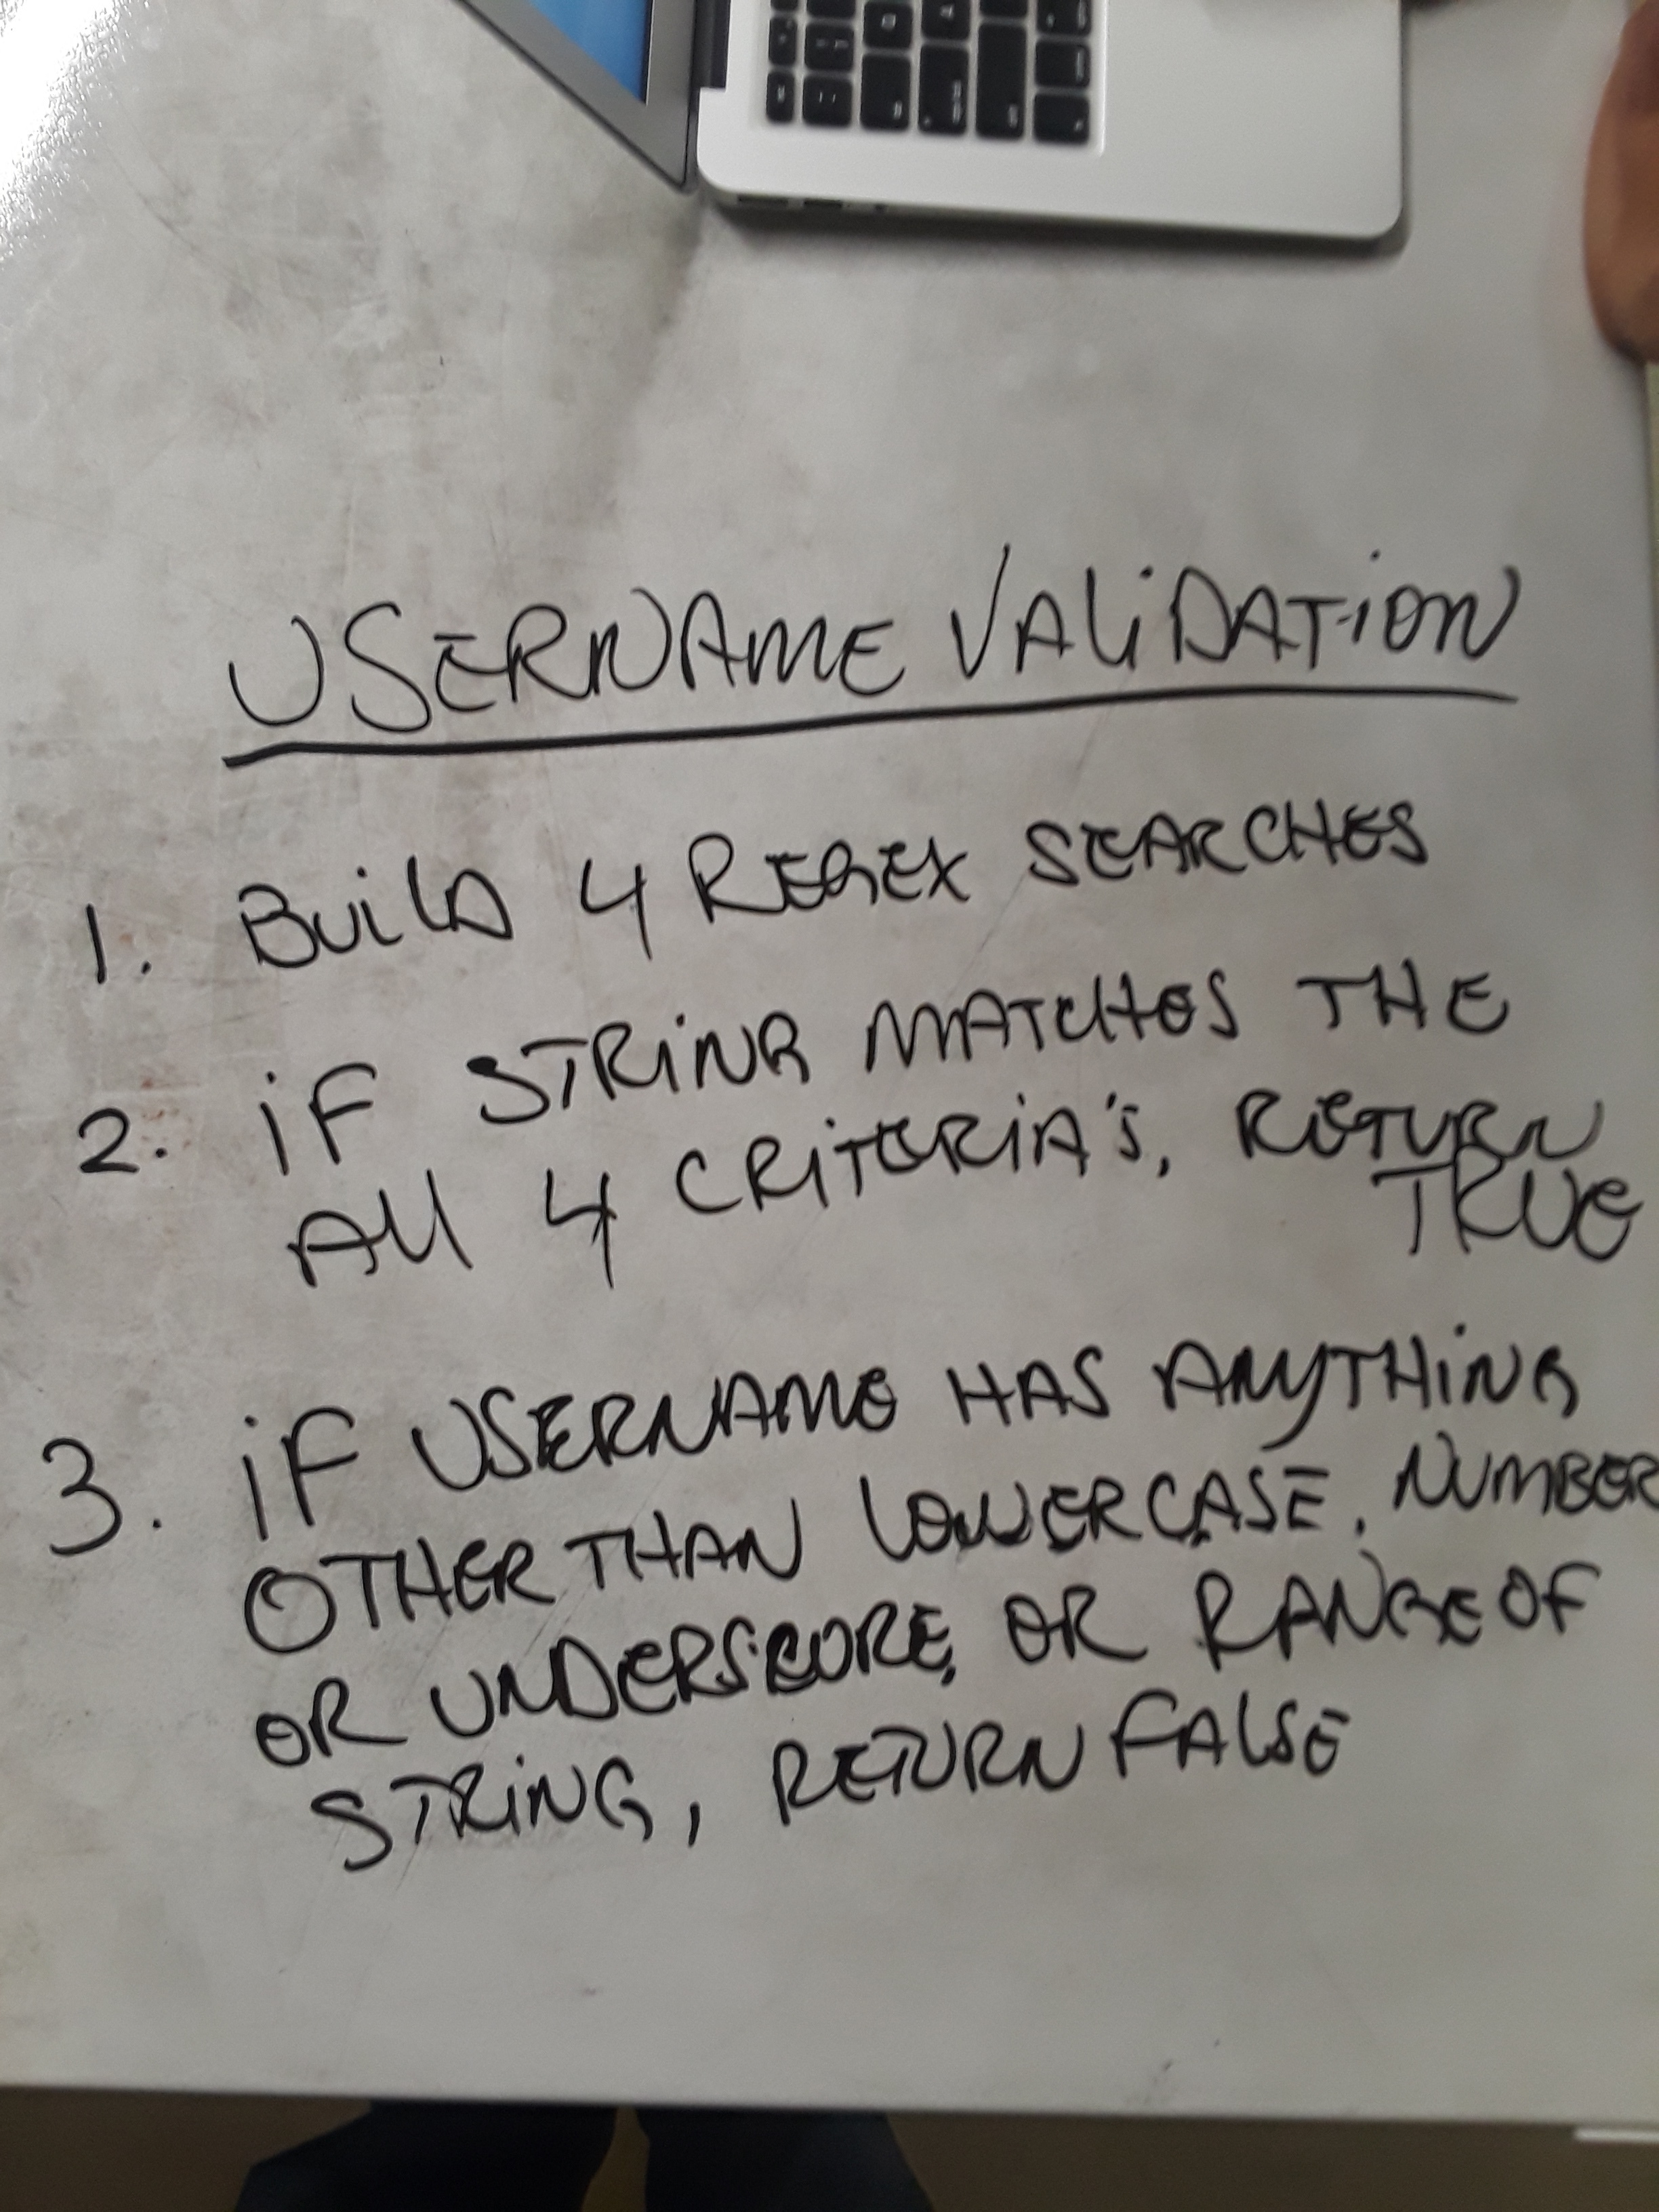 USERNAME VALiDATiON
1. BuilD 4 REGEX SEARCHES
2. iF STRiNG MATCHES THE
All 4 CRiTERiA'S, RETURN
TRUE
3. iF USERNAME HAS ANYTHiNG
OTHER THAN lOWERCASE, NUMBER
OR UNDERSCORE, OR RANGE OF
STRiNG, RETURN FAlSE